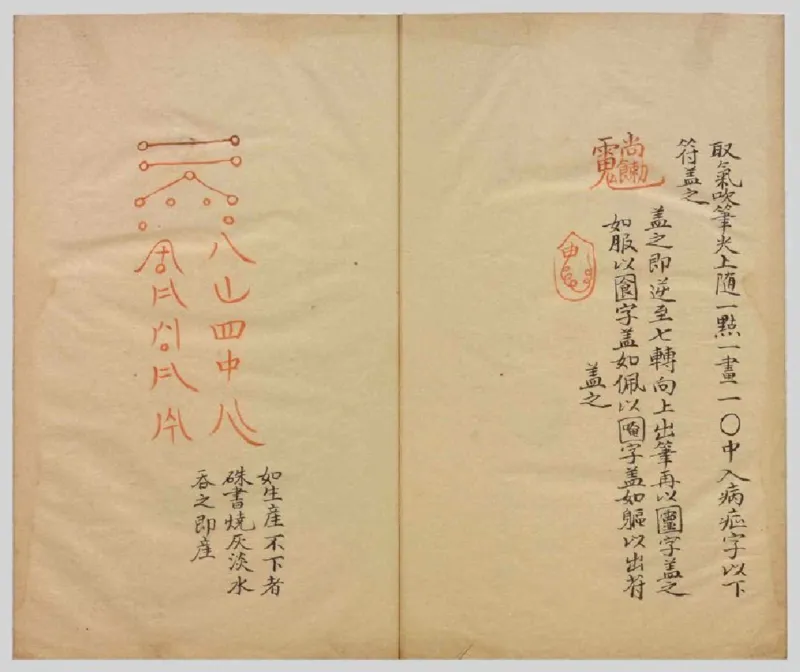 取氣吹筆尖上随一點一畫一〇中入病症字以下
符盖之
尚
盖之即逆至七轉向上出筆再以字盖之
如服以食字盖如佩以字盖如軀以出符
盖之
八山四中八
如生産不下者
硃書燒灰淡水
吞之即産